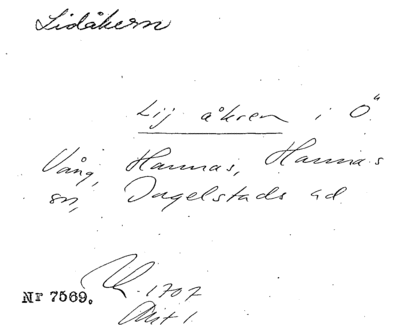 Lidåkern
Lij åkren i Ö.
Vång, Hannas, Hannas
sn, Ingelstads hd
Nr 7569. 1707
Akt 1.